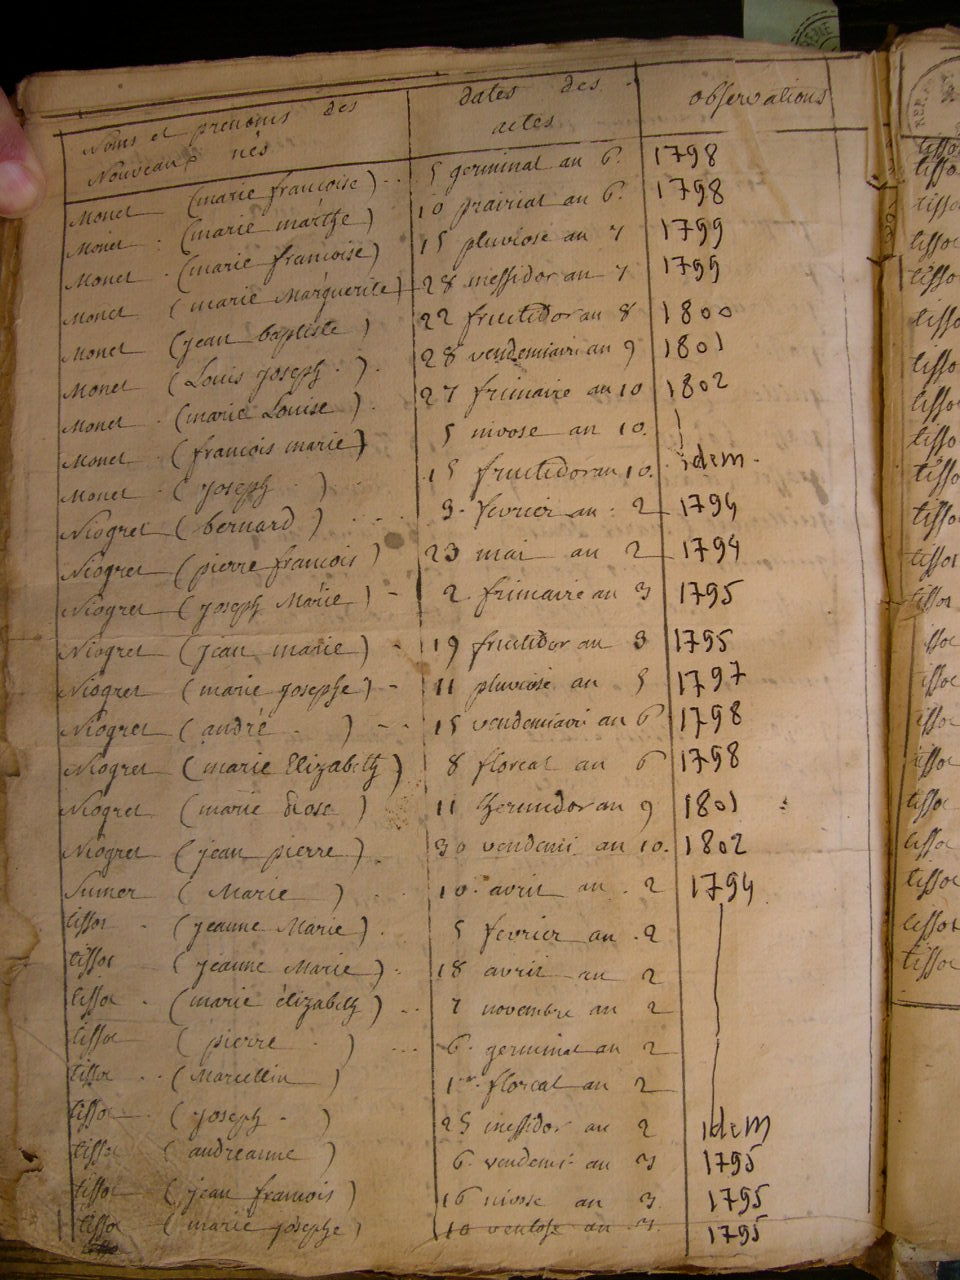 Noms et prenoms des Nouveaux nés | dates des actes | observations
Monet (marie francoise) 5 germinal an 6. 1798
Monet (marie marthe) 10 prairial an 6. 1798
Monet (marie francoise) 15 pluviose an 7 1799
Monet (marie Marguerite) 28 messidor an 7 1799
Monet (jean baptiste) 22 fructidor an 8 1800
Monet (Louis joseph) 28 vendemiaire an 9 1801
Monet (marie Louise) 27 frimaire an 10 1802
Monet (francois marie) 5 nivose an 10.
Monet (joseph) 15 fructidor an 10. idem
Niogret (bernard) 3 fevrier an 2 1794
Niogret (pierre francois) 23 mai an 2 1794
Niogret (joseph Marie) 2 frimaire an 3 1795
Niogret (jean marie) 19 fructidor an 3 1795
Niogret (marie josephe) 11 pluviose an 5 1797
Niogret (andré) 15 vendemiaire an 6 1798
Niogret (marie Elizabeth) 8 floreal an 6 1798
Niogret (marie Rose) 11 thermidor an 9 1801
Niogret (jean pierre) 30 vendemi an 10. 1802
Sumer (Marie) 10 avril an 2 1794
tissot (jeanne Marie) 5 fevrier an 2
tissot (jeanne Marie) 18 avril an 2
tissot (marie élizabeth) 7 novembre an 2
tissot (pierre) 6 germinal an 2
tissot (Marcellin) 1er floreal an 2
tissot (joseph) 25 messidor an 2 idem
tissot (andreanne) 6 vendemi an 3 1795
tissot (jean francois) 16 nivose an 3. 1795
tissot (marie josephe) 10 ventose an 3. 1795